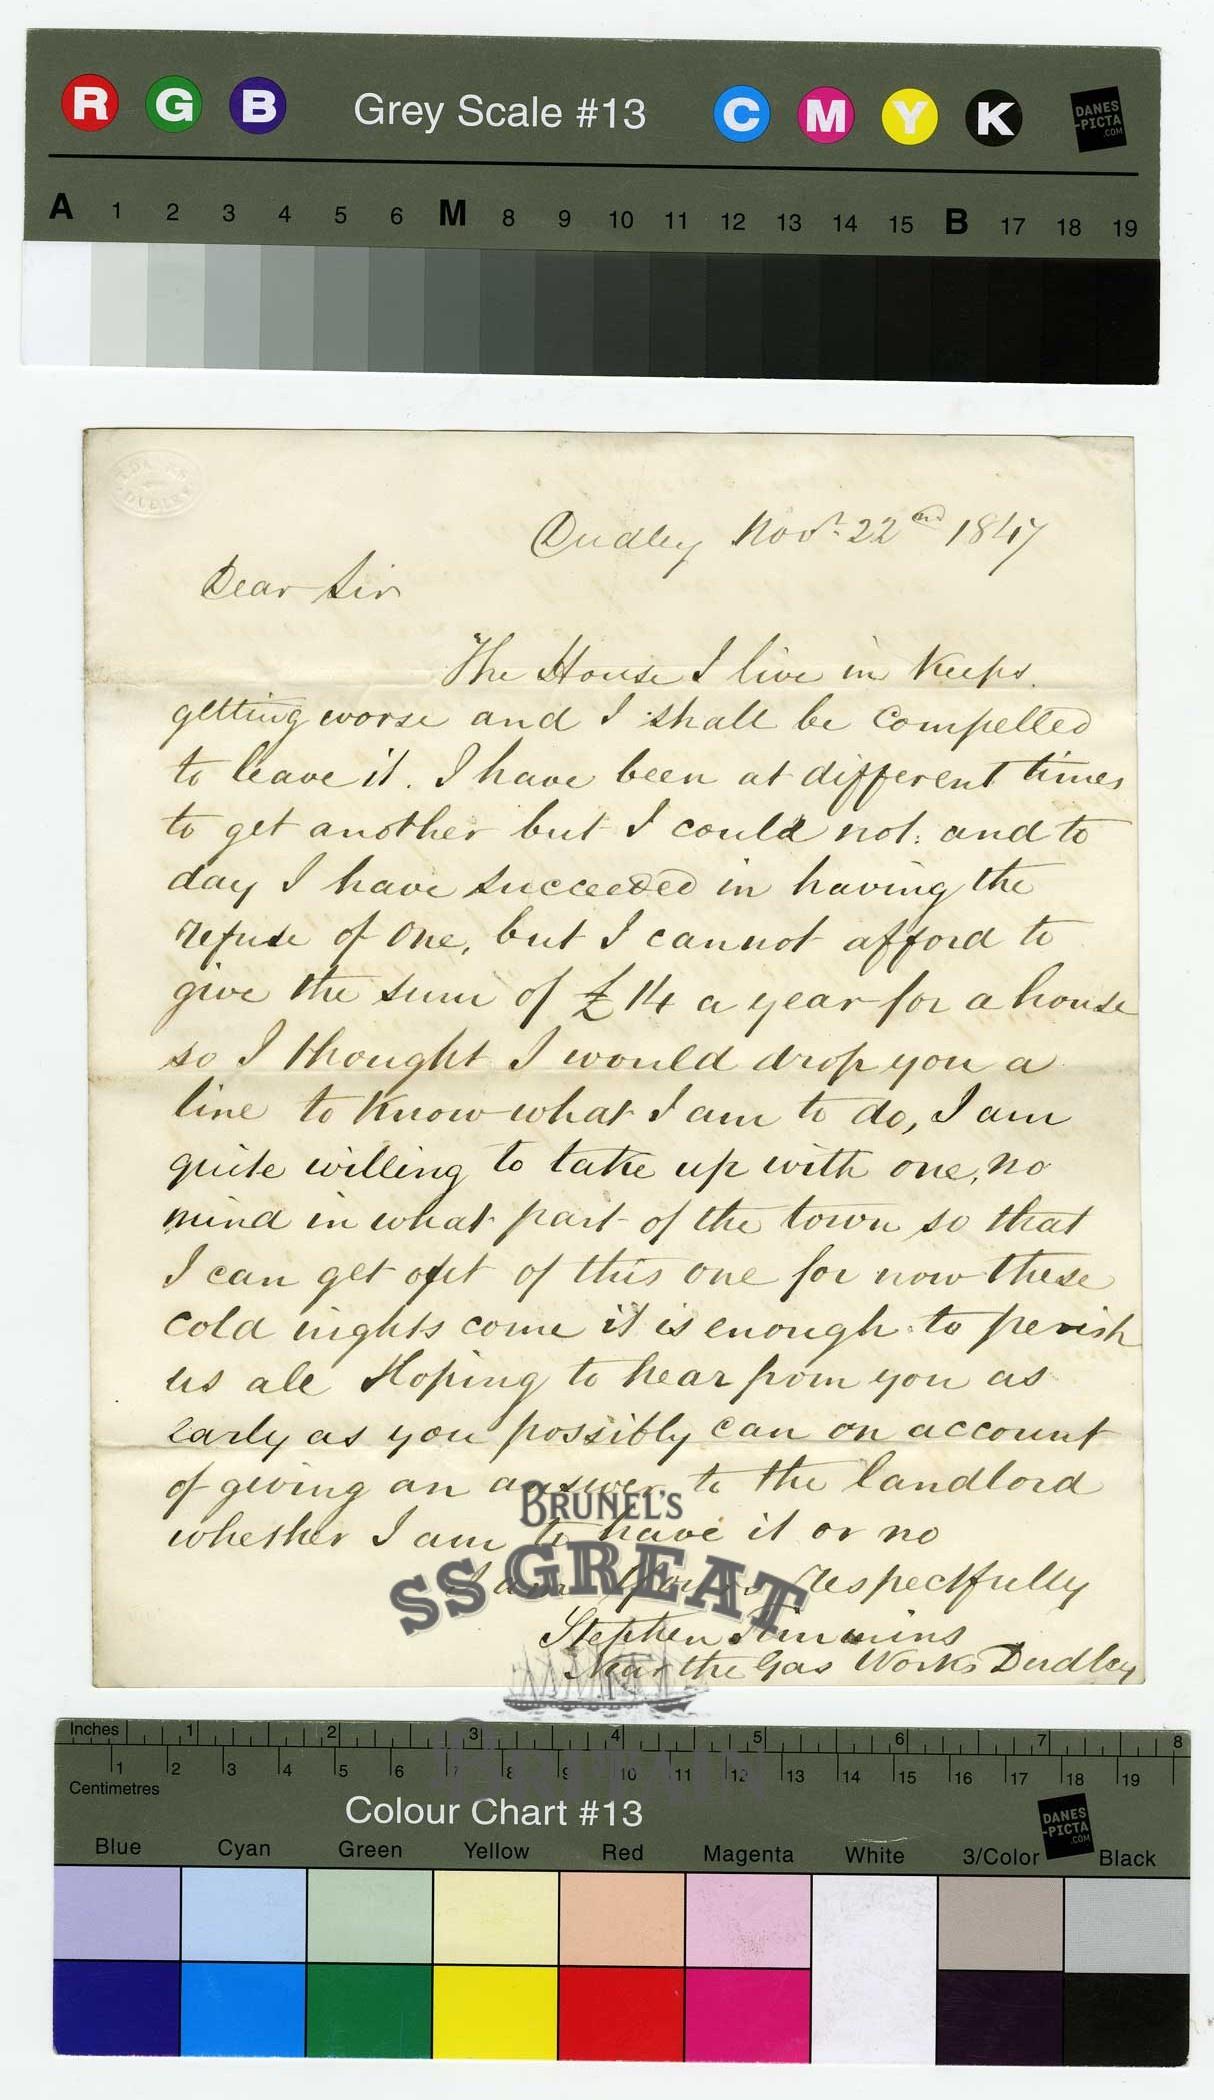 R G B Grey Scale #13 C M Y K DANES-PICTA.COM
A 1 2 3 4 5 6 M 8 9 10 11 12 13 14 15 B 17 18 19
DUDLEY
Dudley Novr. 22nd 1847
Dear Sir
The House I live in Keeps
getting worse and I shall be Compelled
to leave it. I have been at different times
to get another but I could not: and to
day I have succeeded in having the
refuse of one, but I cannot afford to
give the sum of £14 a year for a house
so I thought I would drop you a
line to Know what I am to do, I am
quite willing to take up with one, no
mind in what part of the town so that
I can get out of this one for now these
cold nights come it is enough to perish
us all Hoping to hear from you as
early as you possibly can on account
of giving an answer to the landlord
whether I am to have it or no
I am Yours respectfully
Stephen Timmins
Near the Gas Works Dudley
BRUNEL'S
SS GREAT
BRITAIN
Inches 1 2 3 4 5 6 7 8
1 2 3 4 5 6 7 8 9 10 11 12 13 14 15 16 17 18 19
Centimetres
Colour Chart #13 DANES-PICTA.COM
Blue Cyan Green Yellow Red Magenta White 3/Color Black